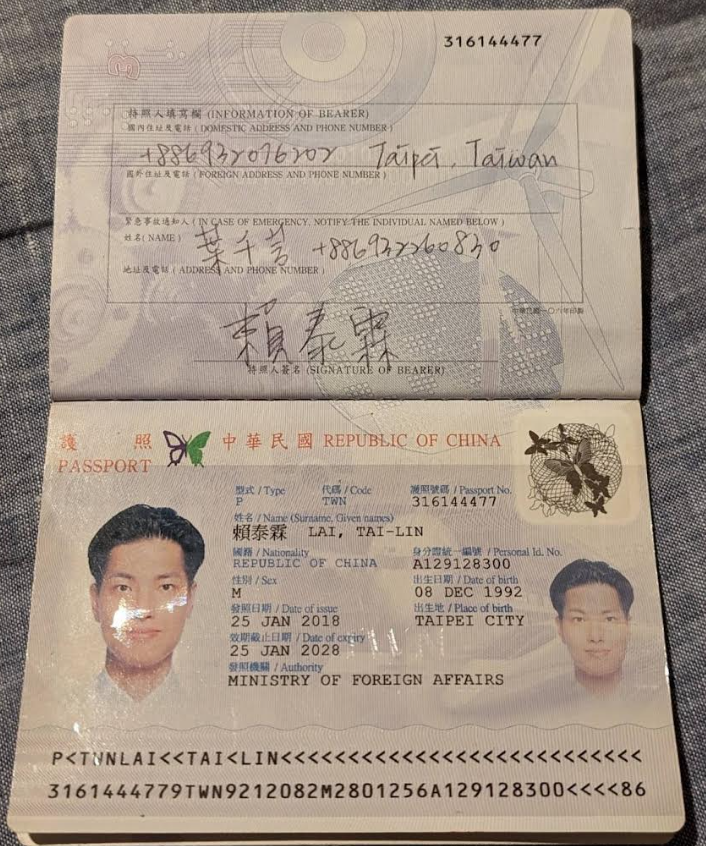 316144477
持照人填寫欄 (INFORMATION OF BEARER)
國內住址及電話 (DOMESTIC ADDRESS AND PHONE NUMBER)
+886932076202 Taipei, Taiwan
國外住址及電話 (FOREIGN ADDRESS AND PHONE NUMBER)
緊急事故通知人 (IN CASE OF EMERGENCY, NOTIFY THE INDIVIDUAL NAMED BELOW)
姓名 (NAME) 葉千 +886932260830
地址及電話 (ADDRESS AND PHONE NUMBER)
中華民國一〇六年印製
賴泰霖
持照人簽名 (SIGNATURE OF BEARER)
護 照 中華民國 REPUBLIC OF CHINA
PASSPORT
型式 / Type 代碼 / Code 護照號碼 / Passport No.
P TWN 316144477
姓名 / Name (Surname, Given names)
賴泰霖 LAI, TAI-LIN
國籍 / Nationality 身分證統一編號 / Personal Id. No.
REPUBLIC OF CHINA A129128300
性別 / Sex 出生日期 / Date of birth
M 08 DEC 1992
發照日期 / Date of issue 出生地 / Place of birth
25 JAN 2018 TAIPEI CITY
效期截止日期 / Date of expiry
25 JAN 2028
發照機關 / Authority
MINISTRY OF FOREIGN AFFAIRS
P<TWNLAI<<TAI<LIN<<<<<<<<<<<<<<<<<<<<<<<<<<<
3161444779TWN9212082M2801256A129128300<<<<86